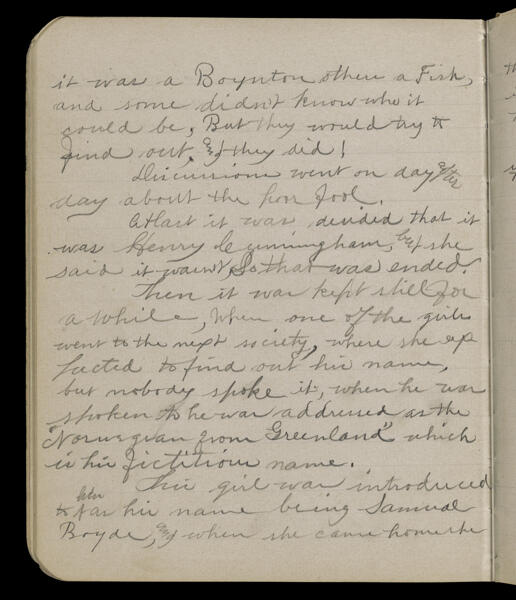 it was a Boynton others a Fish,
and some didn't know who it
could be. But they would try to
find out, & if they did!
Discussions went on day after
day about the
At last it was decided that it
was Henry Cunningham, but she
said it wasn't, So that was ended.
Then it was kept still for
a while, when one of the girls
went to the next society, where she ex
pected to find out his name,
but nobody spoke it, when he was
spoken to he was addressed as the
"Norwegian from Greenland" which
is his fictitious name.
This girl was introduced
to him his name being Samuel
Boyde, and when she came home she